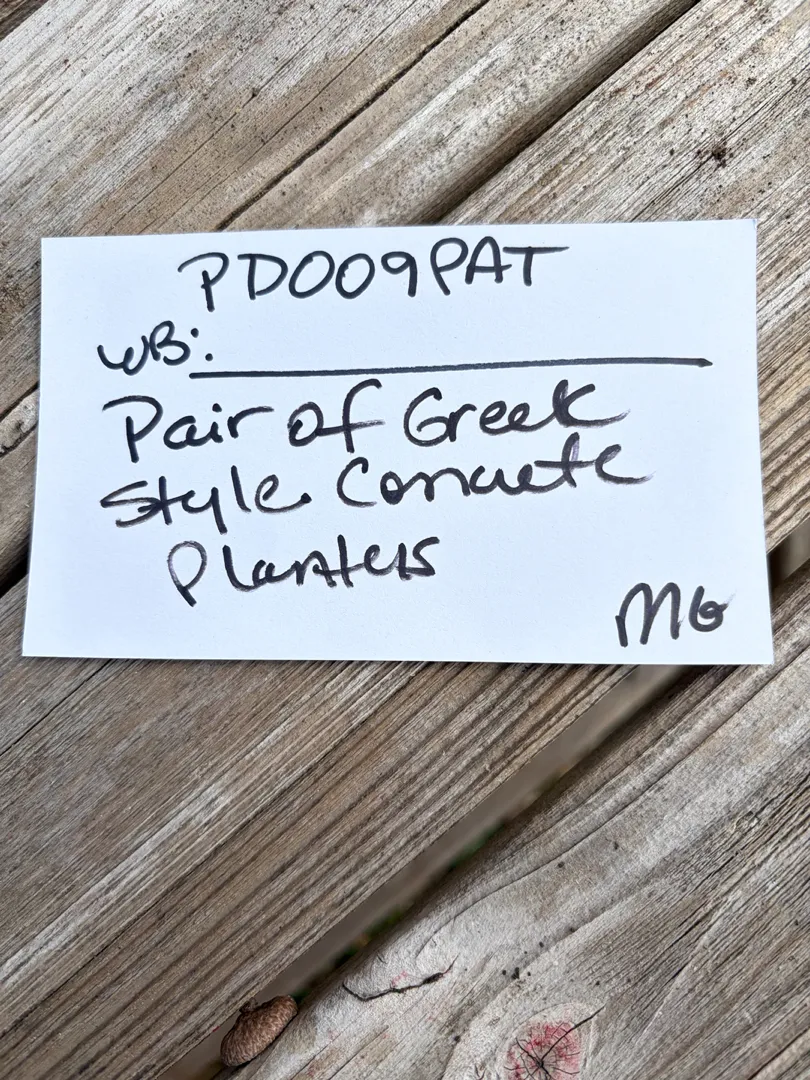 PD009PAT
WB:
Pair of Greek
Style Concrete
Planters
MG